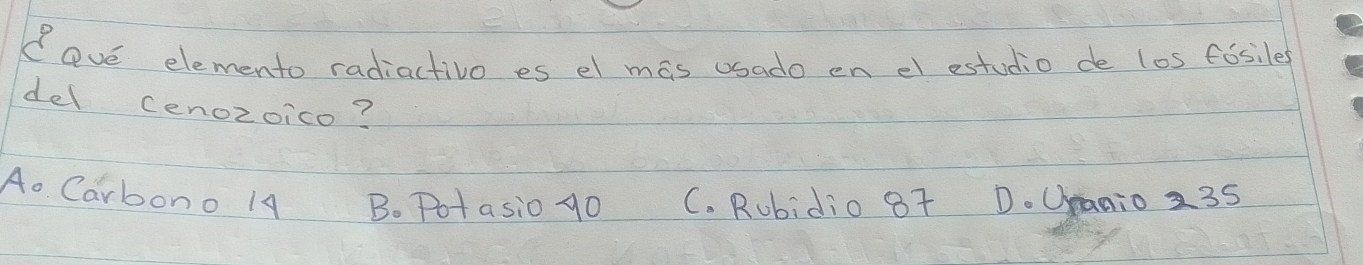 ¿Qué elemento radiactivo es el más usado en el estudio de los fósiles
del cenozoico?
A. Carbono 14 B. Potasio 40 C. Rubidio 87 D. Uranio 235